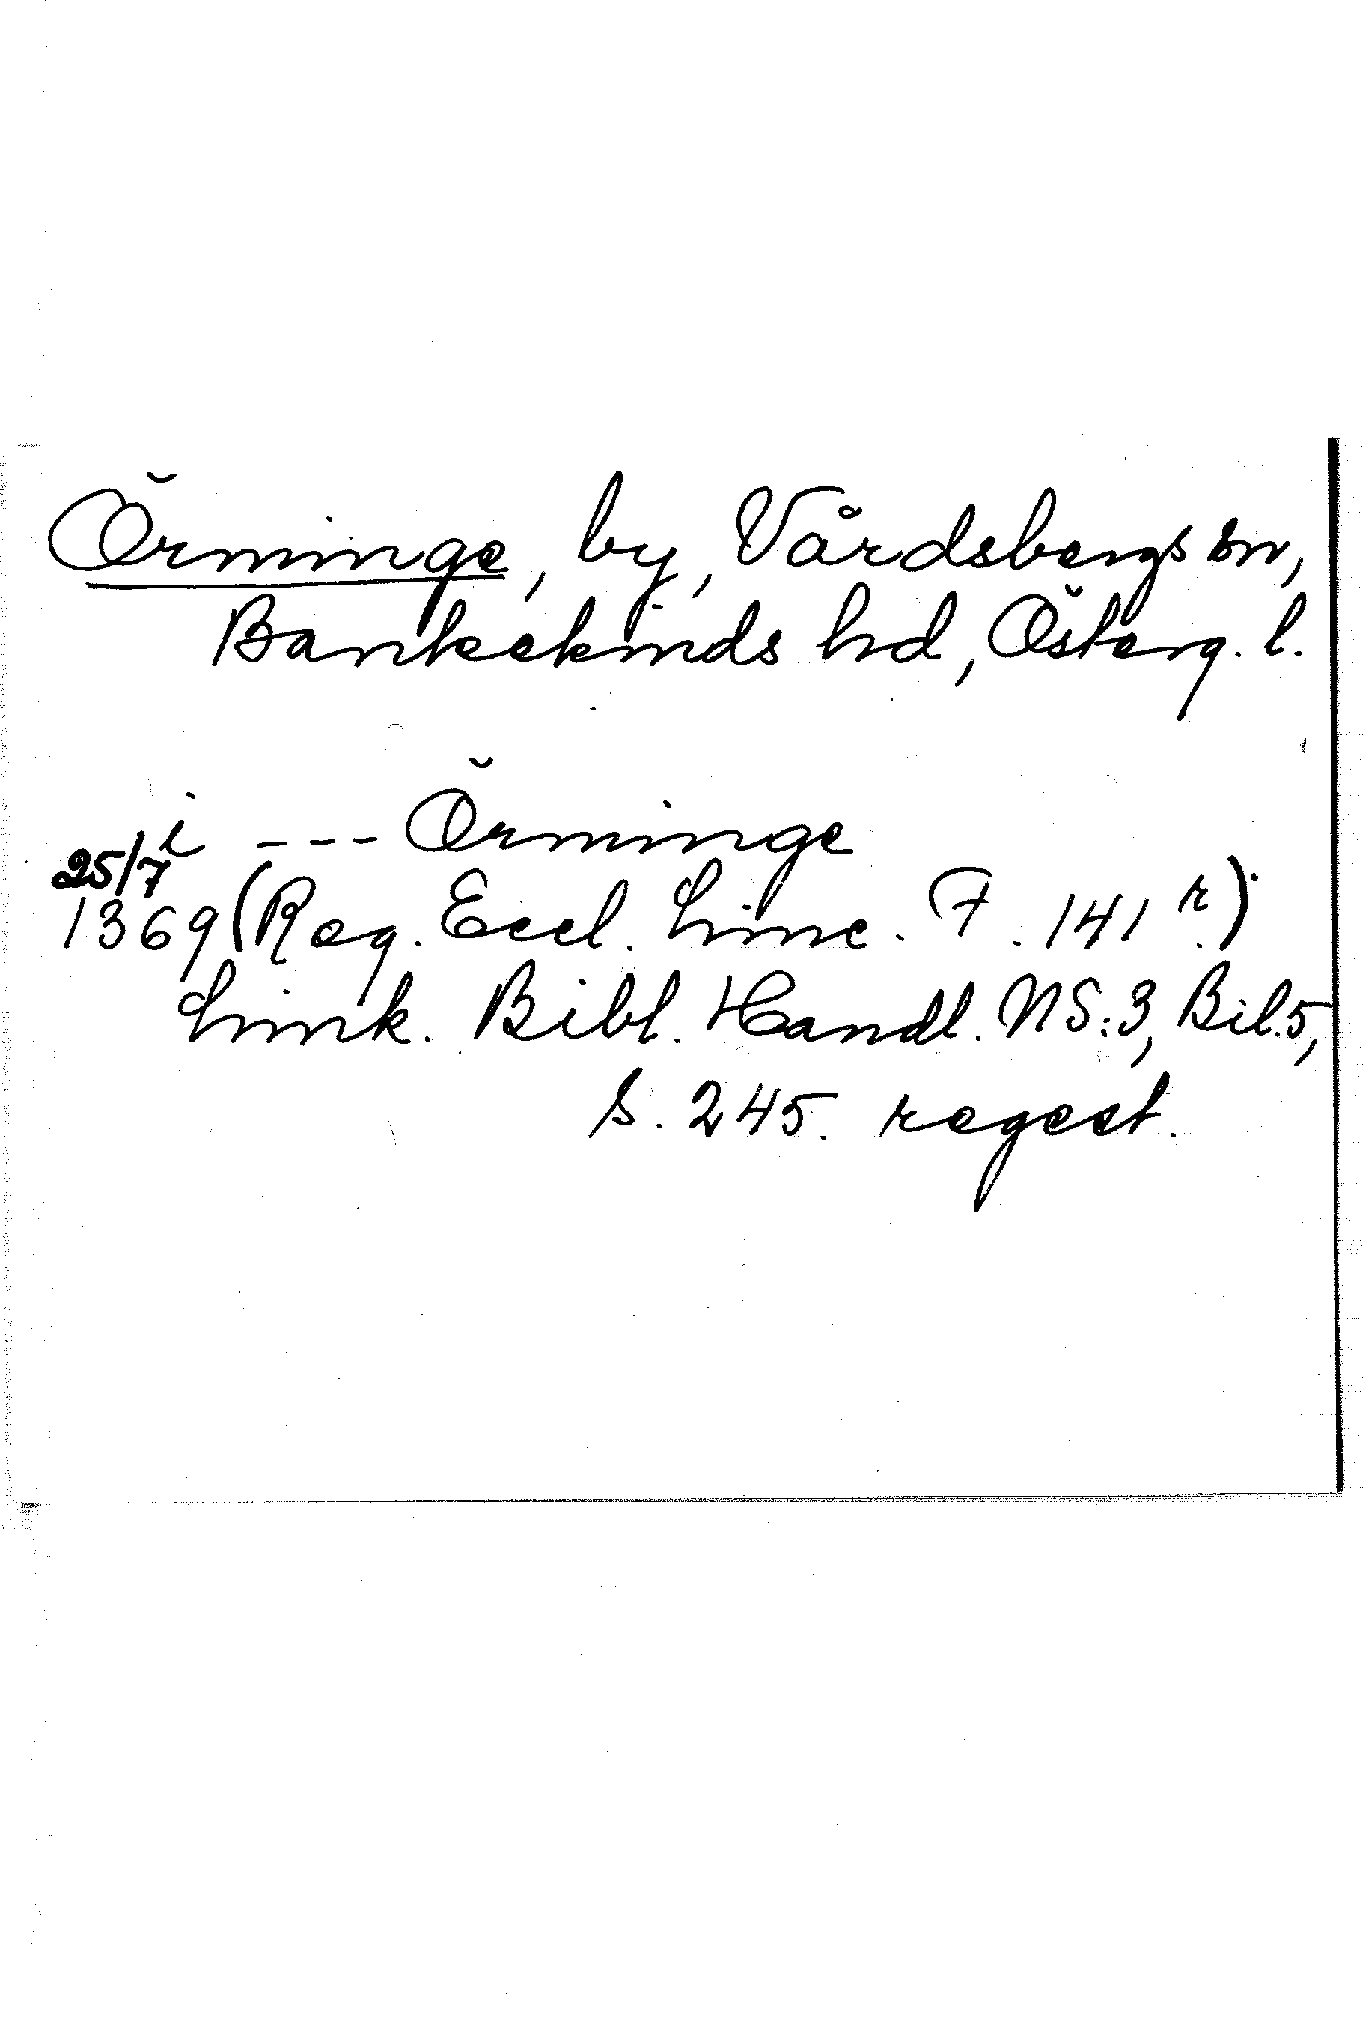 Örminge, by, Vårdsbergs sn,
Bankekinds hd, Österg. l.
i --- Örminge
25/7
1369 (Reg. Eccl. Linc. F. 141 r.)
Link. Bibl. Handl. NS:3, Bil.5,
S. 245. regest.